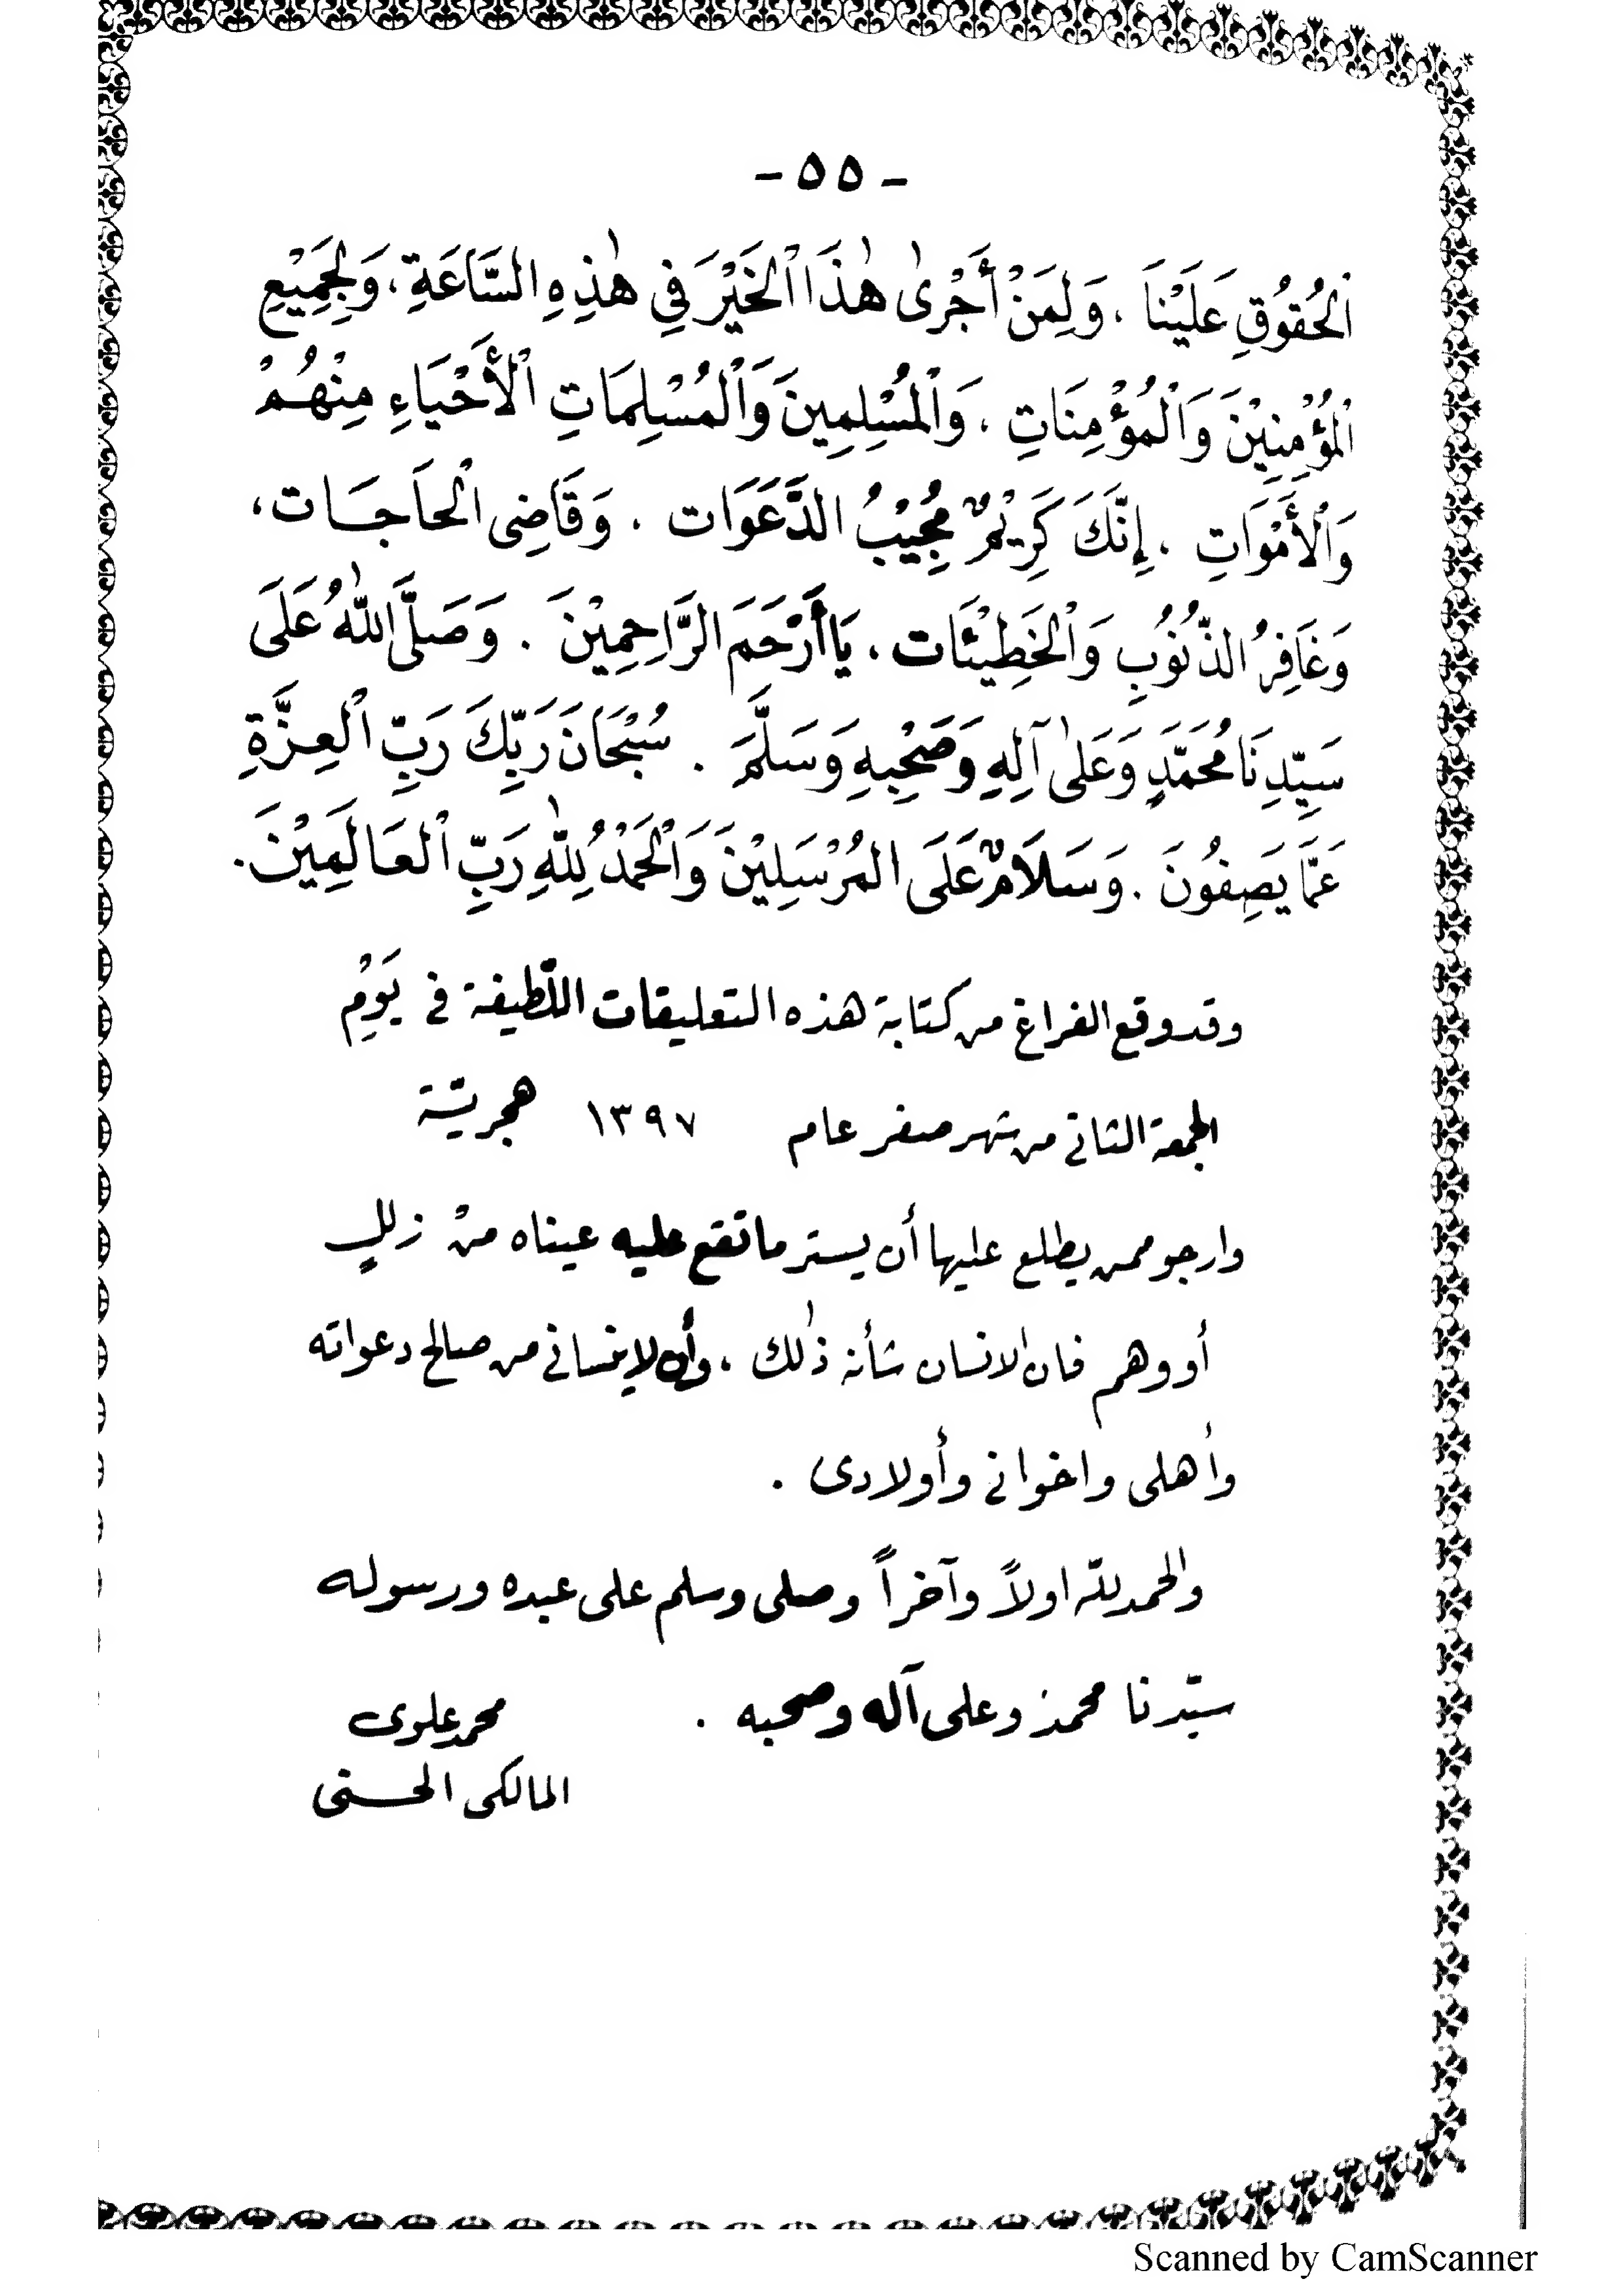 - ٥٥ -
اْلحُقُوْقِ عَلَيْنَا ، وَلِمَنْ أَجْرٰى هٰذَا اْلخَيْرَ فِي هٰذِهِ السَّاعَةِ ، وَلِجَمِيْعِ
اْلمُؤْمِنِيْنَ وَاْلمُؤْمِنَاتِ ، وَاْلمُسْلِمِينَ وَاْلمُسْلِمَاتِ اْلأَحْيَاءِ مِنْهُمْ
وَاْلأَمْوَاتِ ، إِنَّكَ كَرِيْمٌ مُجِيْبُ الدَّعَوَات ، وَقَاضِى اْلحَاجَات ،
وَغَافِرُ الذُّنُوْبِ وَاْلخَطِيْئَات ، يَا أَرْحَمَ الرَّاحِمِيْنَ . وَصَلَّى اللهُ عَلَى
سَيِّدِنَا مُحَمَّدٍ وَعَلٰى آلِهِ وَصَحْبِهِ وَسَلَّمَ . سُبْحَانَ رَبِّكَ رَبِّ اْلعِزَّةِ
عَمَّا يَصِفُونَ . وَسَلَامٌ عَلَى المُرْسَلِيْنَ وَاْلحَمْدُ لِلّٰهِ رَبِّ اْلعَالَمِيْنَ .
وقد وقع الفراغ من كتابة هذه التعليقات اللّطيفة في يَوْمِ
الجمعة الثاني من شهر صفر عام ١٣٩٧ هجريّة
وارجو ممن يطلع عليها أن يستر ما تقع عليه عيناه منْ زللٍ
أو وهم فان الانسان شأنه ذٰلك ، وأن لاينساني من صالح دعواته
وأهلى واخواني وأولادى .
والحمد لله اولاً وآخراً وصلى وسلم على عبده ورسوله
سيّدنا محمد وعلى آله وصحبه .
محمد علوى
المالكى الحسنى
Scanned by CamScanner